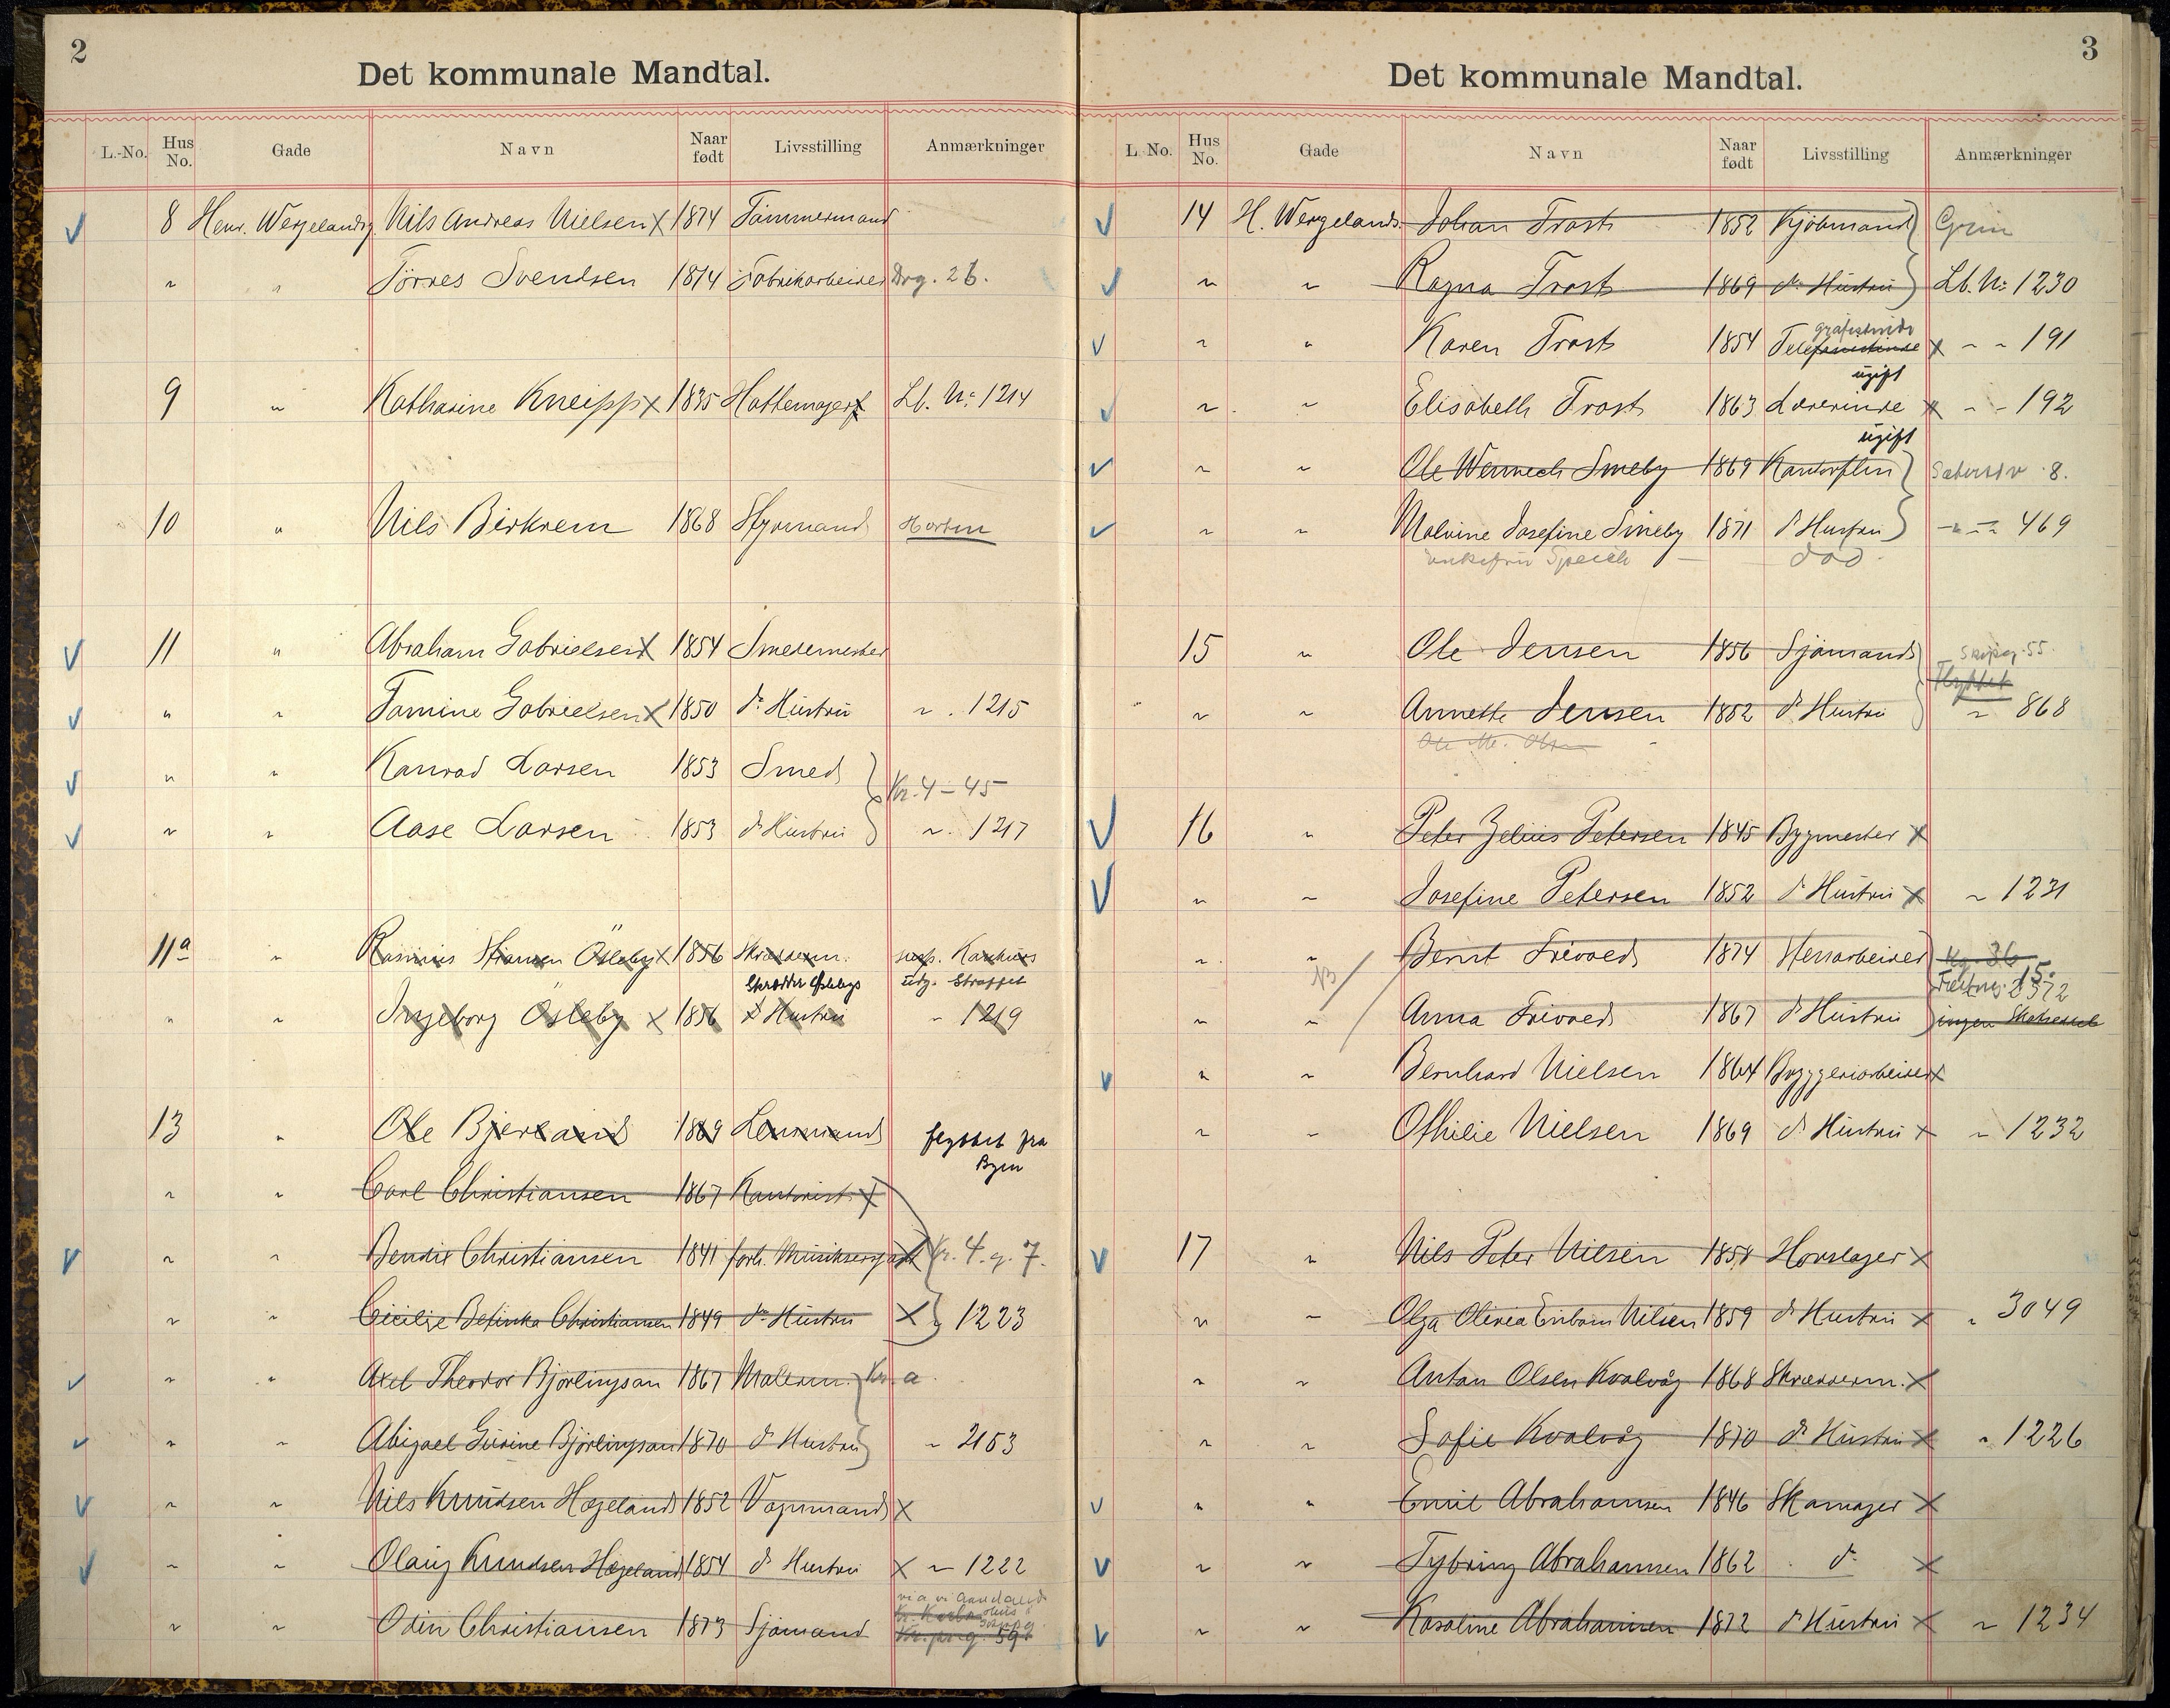 2
Det kommunale Mandtal.
L.-No. Hus No. Gade Navn Naar født Livsstilling Anmærkninger
8 Henr. Wergelandsg. Nils Andreas Nielsen X 1874 Tömmermand
" " Törres Svendsen 1874 Fabrikarbeider Drg. 26.
9 " Katharine Kneipp X 1835 Hattemager Lb. No 1214
10 " Nils Birkrem 1868 Styrmand Horten
11 " Abraham Gabrielsen X 1854 Smedemester
" " Tomine Gabrielsen X 1850 do Hustru " 1215
" " Konrad Larsen 1853 Smed
Kr. 4 - 45
" " Aase Larsen 1853 do Hustru " 1217
11a " Rasmus Osleby X 1856 Skræderm. Karhus
udg. Strøffet
" " Ingeborg Ösleby X 1856 do Hustru " 1219
13 " Ole Bjerland 1869 Lensmand flyttet fra
Byen
" " Carl Christiansen 1867 Kontorist X
" " Bendix Christiansen 1841 forh. Musiksergeant X Kr. 4. g. 7.
" " Cicilie Befinka Christiansen 1849 do Hustru X 1223
" " Axel Theodor Björlingson 1867 Malerm. Kr. a
" " Abigael Gurine Björlingson 1870 do Hustru " 2153
" " Nils Knudsen Hægeland 1852 Vognmand X
" " Olaug Knudsen Hægeland 1854 do Hustru X " 1222
" " Odin Christiansen 1873 Sjömand
59
3
Det kommunale Mandtal.
L. No. Hus No. Gade Navn Naar født Livsstilling Anmærkninger
14 H. Wergelands. Johan Trost 1852 Kjöbmand Grim
" " Ragna Trost 1869 do Hustru Lb. No 1230
grafistinde
" " Karen Trost 1854 Telefonistinde X " " 191
ugift
" " Elisabeth Trost 1863 Lærerinde X " " 192
ugift
" " Ole Wennech Smeby 1869 Kontorflm 8.
" " Malvine Josefine Smeby 1871 do Hustru " " 469
Enkefru död
15 " Ole Jensen 1856 Sjömand Skipg. 55.
Flyttet
" " Annette Jensen 1862 do Hustru " 868
16 " Peter Zelius Petersen 1845 Bygmester X
" " Josefine Petersen 1852 do Hustru X " 1231
" " Bernt Trivoed 1874 Stenarbeider Kg. 36
15.
2372
" " Anna Trivoed 1867 do Hustru ingen Skatseddel
" " Bernhard Nielsen 1864 Bryggeriarbeider X
" " Othilie Nielsen 1869 do Hustru X " 1232
17 " Nils Peter Nilsen 1858 Hovslager X
" " Olga Olivia Nilsen 1859 do Hustru X " 3049
" " Anton Olsen Kvalvåg 1868 Skrædderm. X
" " Sofie Kvalvåg 1870 do Hustru X " 1226
" " Emil Abrahamsen 1846 Skomager X
" " Tybring Abrahamsen 1862 do X
" " Rosaline Abrahamsen 1872 do Hustru X " 1234